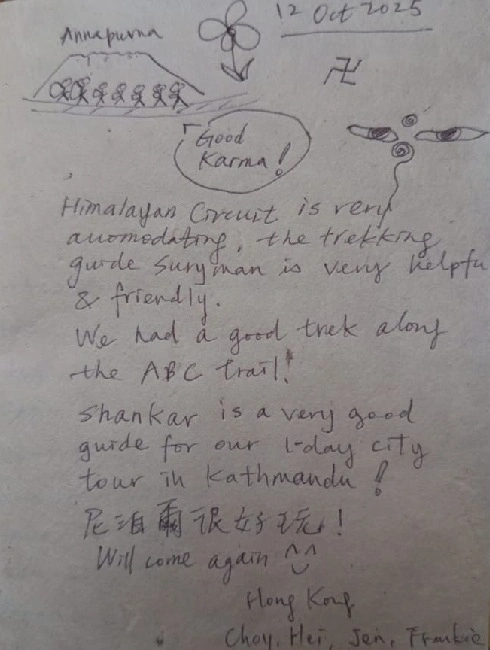 Annapurna
12 Oct 2025
卍
Good
Karma!
Himalayan Circuit is very
auomodating, the trekking
guide Suryman is very helpfu
& friendly.
We had a good trek along
the ABC trail!
Shankar is a very good
guide for our 1-day city
tour in Kathmandu!
尼泊爾很好玩!
Will come again ^^
Hong Kong
Choy, Hei, Jen, Frankie